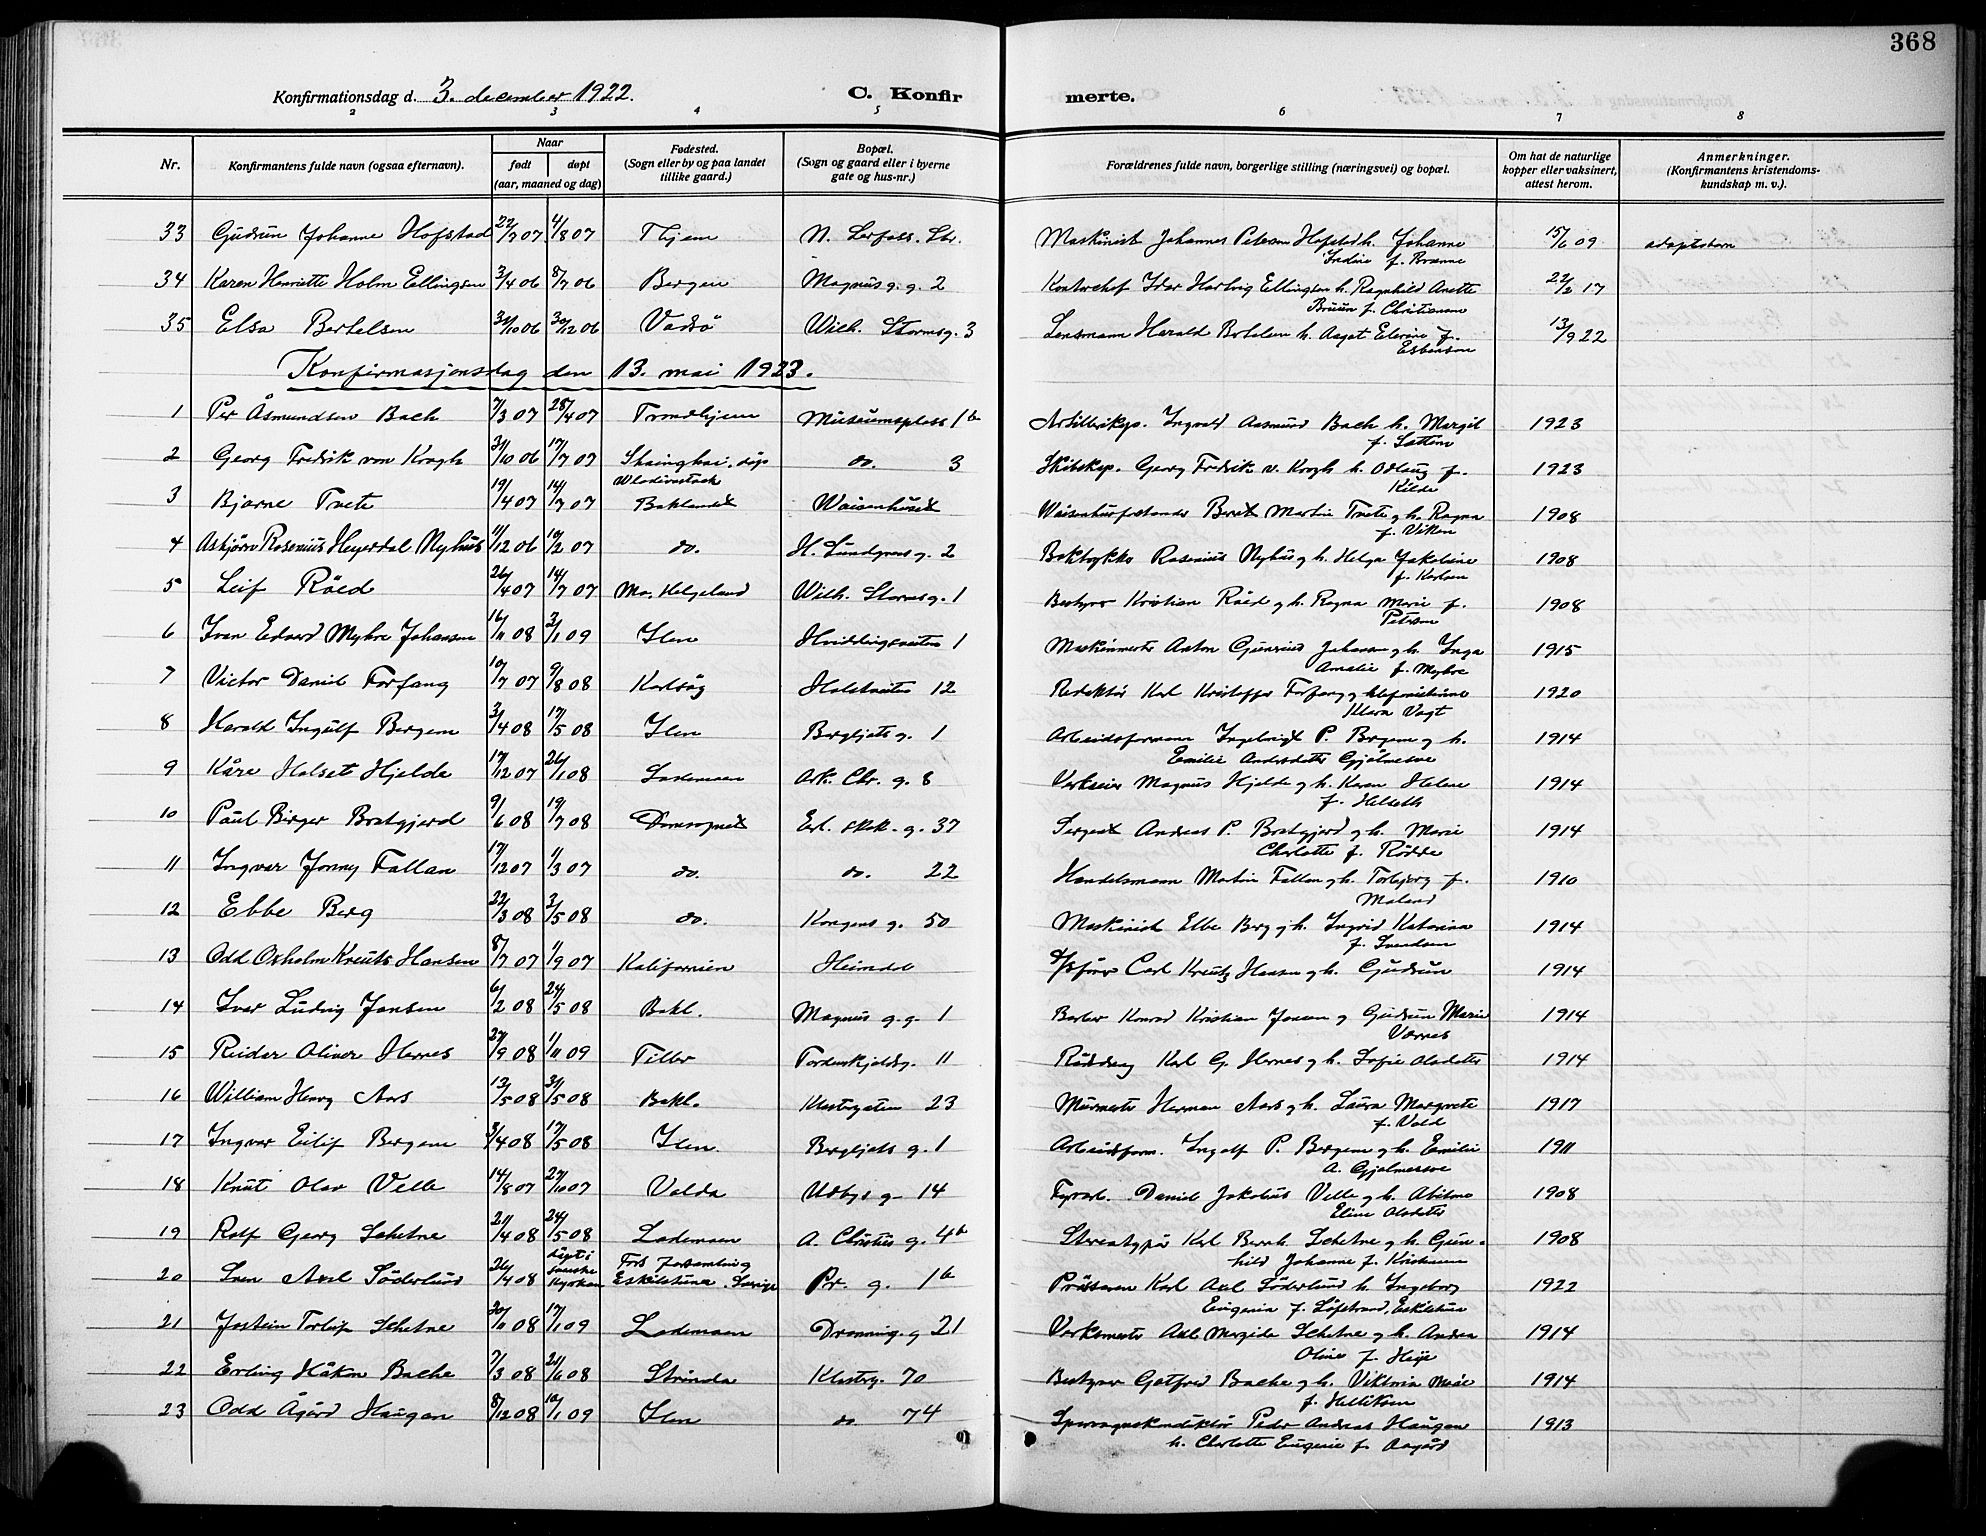 368
Konfirmationsdag d. 3. december 1922. C. Konfirmerte.
2 3 4 5 6 7 8
Nr. Konfirmantens fulde navn (ogsaa efternavn). Naar født døpt (aar, maaned og dag) Fødested. (Sogn eller by og paa landet tillike gaard.) Bopæl. (Sogn og gaard eller i byerne gate og hus-nr.) Forældrenes fulde navn, borgerlige stilling (næringsvei) og bopæl. Om hat de naturlige kopper eller vaksinert, attest herom. Anmerkninger. (Konfirmantens kristendomskundskap m. v.).
33 Gudrun Johanne Hofstad 22/7 07 4/8 07 Thjem N. Lerfoss. Str. Maskinist Johannes Petersen Hofstad h. Johanne 15/6 09 adoptivbarn
Indine f. Brænne
34 Karen Henriette Holm Ellingsen 3/4 06 8/7 06 Bergen Magnus g. g. 2 Kontorchef Idar Hartvig Ellingsen h. Ragnhild Anette 22/2 17
Bruun f. Christiansen
35 Elsa Bertelsen 31/10 06 30/12 06 Vadsö Wilh. Stormsg. 3 Lensmann Harald Bertelsen h. Aagot Elerine f. 13/9 22
Esbensen
Konfirmasjonsdag den 13. mai 1923.
1 Per Åsmundsen Bach 7/3 07 28/4 07 Trondhjem Museumsplass 1b Artillerikp. Ingvald Aasmund Bach h. Margit 1923
f. Sættem
2 Georg Fredrik von Krogh 31/10 06 17/7 07 Shainghai. döp. Wladivostock do. 3 Skibskp. Georg Fredrik v. Krogh h. Odlaug f. 1923
Kilde
3 Bjarne Tvete 19/4 07 14/7 07 Baklandet Waisenhuset Waisenhusforstander Berét Martin Tvete g h. Ragna 1908
f. Viken
4 Asbjörn Rasmus Heyerdal Nyhus 11/12 06 10/2 07 do. H. Lundgrens g. 2 Boktrykker Rasmus Nyhus g h. Helga Jakobine 1908
f. Karlsen
5 Leif Röed 26/4 07 14/7 07 Mo. Helgeland Wilh. Stormsg. 1 Bestyrer Kristian Röed g h. Ragna Marie f. 1908
Petersen
6 Ivan Edvard Myhre Johansen 16/11 08 3/1 09 Ilen Hviddingsveiten 1 Maskinmester Anton Gunerius Johansen g h. Inga 1915
Amalie f. Myhre
7 Victor Daniel Forfang 10/7 07 9/8 08 Karlsöy Holstveiten 12 Redaktör Karl Kristoffer Forfang g 1920
Klara Vogt
8 Harald Ingulf Bergem 3/4 08 17/5 08 Ilen Bergljots g. 1 Arbeidsformann Ingebrigt P. Bergem g h. 1914
Emilie Andersdatter Gjölmesve
9 Kåre Halset Hjelde 17/12 07 26/1 08 Lademoen Ark. Chr. g. 8 Verkseier Magnus Hjelde g h. Karen Helene 1914
f. Helseth
10 Paul Birger Bratgjerd 9/6 08 19/7 08 Domsognet Erl. skk. g. 37 Sergeat Andreas P. Bratgjerd g h. Marie 1914
Charlotte f. Rödde
11 Ingvar Jonny Fallan 17/12 07 1/3 07 do. do. 22 Handelsmann Martin Fallan g h. Torbjorg f. 1910
Maland
12 Ebbe Berg 22/3 08 3/5 08 do. Kongens g. 50 Maskinist Ebbe Berg g h. Ingrid Katarina 1914
f. Svendsen
13 Odd Oxholm Kreutz Hansen 8/7 07 1/9 07 Kalifornien Heimdal Carl Kreutz Hansen g h. Gudrun 1914
14 Ivar Ludvig Jensen 6/2 08 24/5 08 Bakl. Magnus g. g. 1 Barber Konrad Kristian Jensen g Gudrun Marie 1914
Værnes
15 Reidar Oliver Hernes 27/9 08 1/11 09 Tiller Tordenskjoldsg. 11 Karl G. Hernes g h. Sofie Olsdatter 1914
16 William Henry Aars 13/5 08 31/5 08 Bakl. Klostergaten 23 Murmester Herman Aars g h. Laura Margrete 1917
f. Vold
17 Ingvar Eilif Bergem 3/4 08 17/5 08 Ilen. Bergljots g. 1 Arbeidsform. Ingolf P. Bergem g h. Emilie 1911
A. Gjölmesve
18 Knut Olav Velle 14/8 07 27/10 07 Volda Udbys g. 14 Fyrarb. Daniel Jakobus Velle g h. 1908
Eline Olsdatter
19 Rolf Georg Schetne 21/4 08 24/5 08 Lademoen A. Christies g. 4b Stereotypör Karl Bernh. Schetne g h. Gun- 1908
hild Johanne f. Kristiansen
20 Sven Axel Söderlund 26/4 08 döpt i svenske kyrkan Fors forsamling Eskilstuna. Sverige Pr. g. 1b Karl Axel Söderlund h. Ingeborg 1922
Eugenia f. Löfstrand, Eskilstuna
21 Jostein Torleif Schetne 30/11 08 17/1 09 Lademoen Dronning. g 21 Verksmester Axel Schetne g h. Andrea 1914
Oline f. Höie
22 Erling Håkon Bache 7/3 08 21/6 08 Strinda Klosterg. 70 Bestyrer Gotfred Bache g h. Viktoria Marie 1914
f. Helliksen
23 Odd Ågård Haugan 8/12 08 10/1 09 Ilen do. 74 Sporvognskonduktör Peder Andreas Haugan 1913
h. Charlotte Eugenie f. Aagård